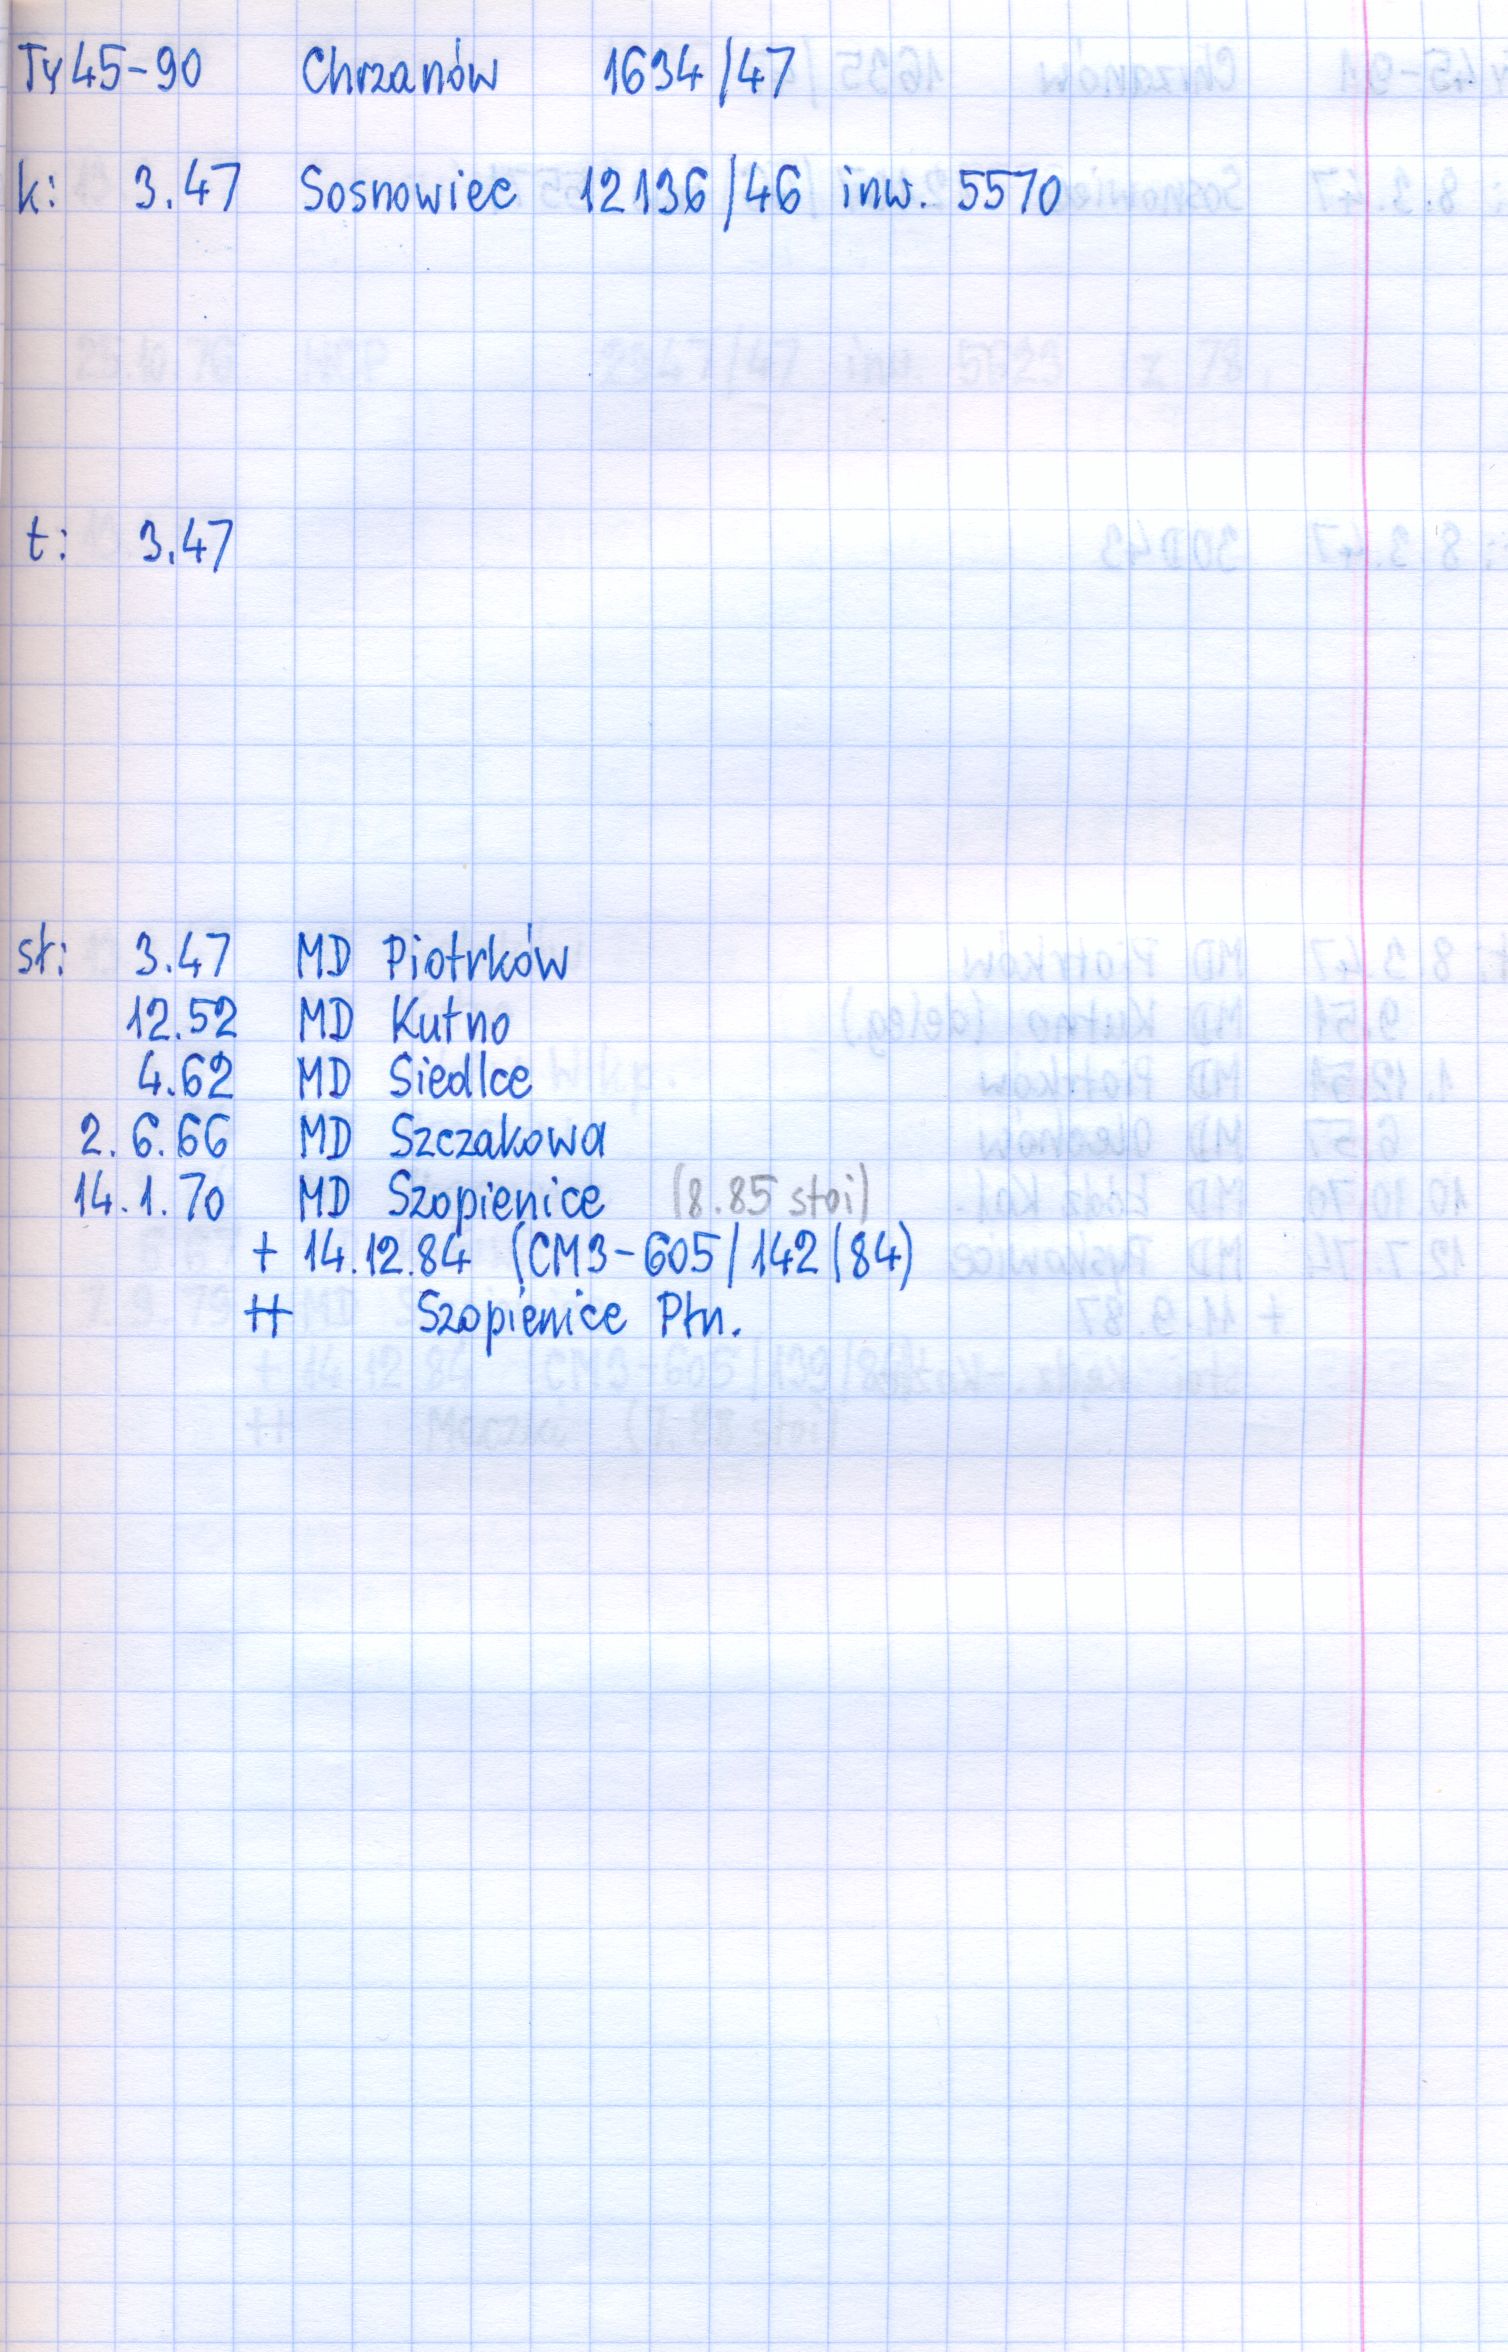 Ty45-90 Chrzanów 1634/47
k: 3.47 Sosnowiec 12136/46 inw. 5570
t: 3.47
st: 3.47 MD Piotrków
12.52 MD Kutno
4.62 MD Siedlce
2.6.66 MD Szczakowa
14.1.70 MD Szopienice (8.85 stoi)
+ 14.12.84 (CM3-605/142/84)
++ Szopienice Płn.